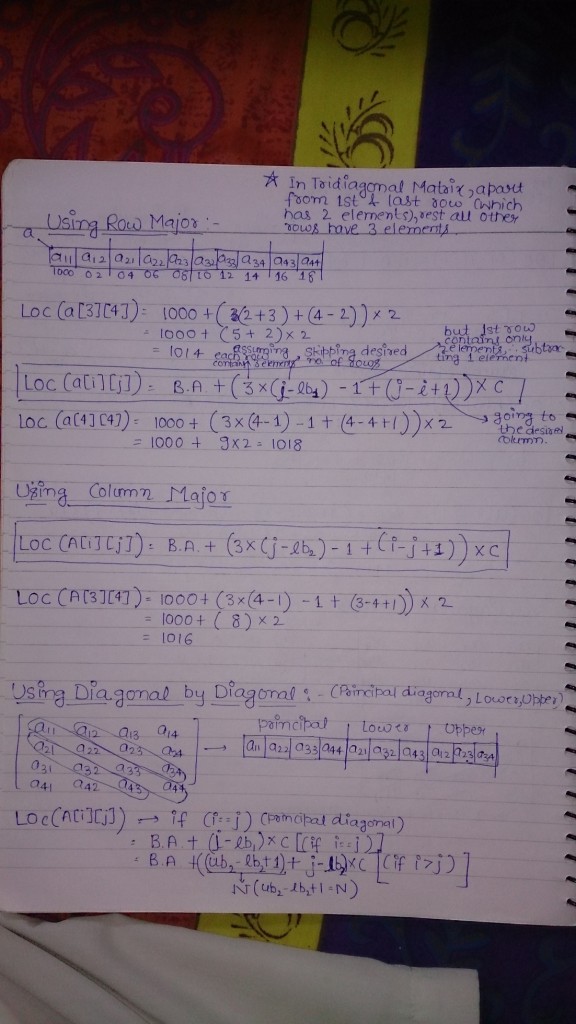 ☆ In Tridiagonal Matrix, apart
from 1st & last row (which
has 2 elements), rest all other
rows have 3 elements.
Using Row Major :-
a
a11 a12 a21 a22 a23 a32 a33 a34 a43 a44
1000 02 04 06 08 10 12 14 16 18
Loc (a[3][4]) = 1000 + ((2+3) + (4-2)) × 2
= 1000 + (5 + 2) × 2
= 1014
assuming each row contains 3 elements
skipping desired no of rows
but 1st row
contains only
2 elements, ∴ subtrac
ting 1 element
Loc (a[i][j]) = B.A. + (3×(j-lb1) - 1 + (j-i+1)) × C
going to
the desired
column.
Loc (a[4][4]) = 1000 + (3×(4-1) - 1 + (4-4+1)) × 2
= 1000 + 9×2 = 1018
Using Column Major
Loc (A[i][j]) = B.A. + (3×(j-lb2) - 1 + (i-j+1)) × C
Loc (A[3][4]) = 1000 + (3×(4-1) - 1 + (3-4+1)) × 2
= 1000 + (8) × 2
= 1016
Using Diagonal by Diagonal :- (Principal diagonal, Lower, Upper)
a11 a12 a13 a14
a21 a22 a23 a24
a31 a32 a33 a34
a41 a42 a43 a44
→
principal | Lower | Upper
a11 a22 a33 a44 a21 a32 a43 a12 a23 a34
Loc (A[i][j]) → if (i==j) (principal diagonal)
= B.A. + (i-lb1) × C [(if i==j)]
= B.A + ((ub2-lb2+1) + j-lb2) × C [(if i>j)]
N (ub2-lb2+1 = N)